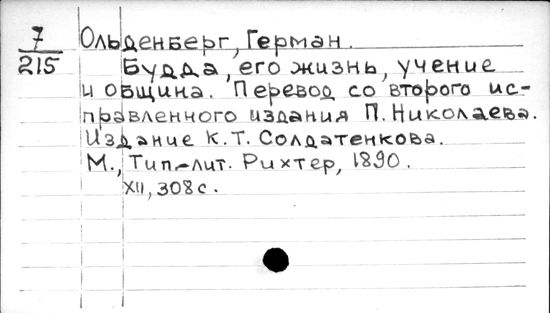 7
215
Ольденберг, Герман.
Будда, его жизнь, учение
и община. Перевод со второго ис-
правленного издания П. Николаева.
Издание К. Т. Солдатенкова.
М., Тип-лит. Рихтер, 1890.
XII, 308 с.